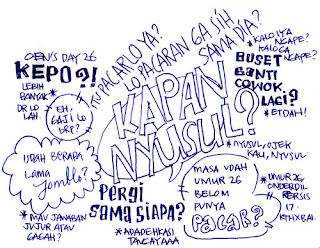 OEN'S DAY 26
KEPO?!
LEBIH
BANYAK
DR LO
LAH.
EH,
GAJI LO
BRP?
UDAH BERAPA
LAMA
Jomblo?
*MAU JAWABAN
JUJUR ATAU
GAGAH?
ITU PACAR LO YA?
LO PACARAN GA SIH
SAMA DIA?
KAPAN
NYUSUL?
PERGI
SAMA SIAPA?
*KALO IYA
NGAPE?
KALO GA
NGAPE?
BUSET
GANTI
COWOK
LAGI?
*ETDAH!
*NYUSUL, OJEK
KALI, NYUSUL
MASA UDAH
UMUR 26
BELOM
PUNYA
PACAR?
*UMUR 26
ONDERDIL
PERSIS
17.
KTHXBAI.